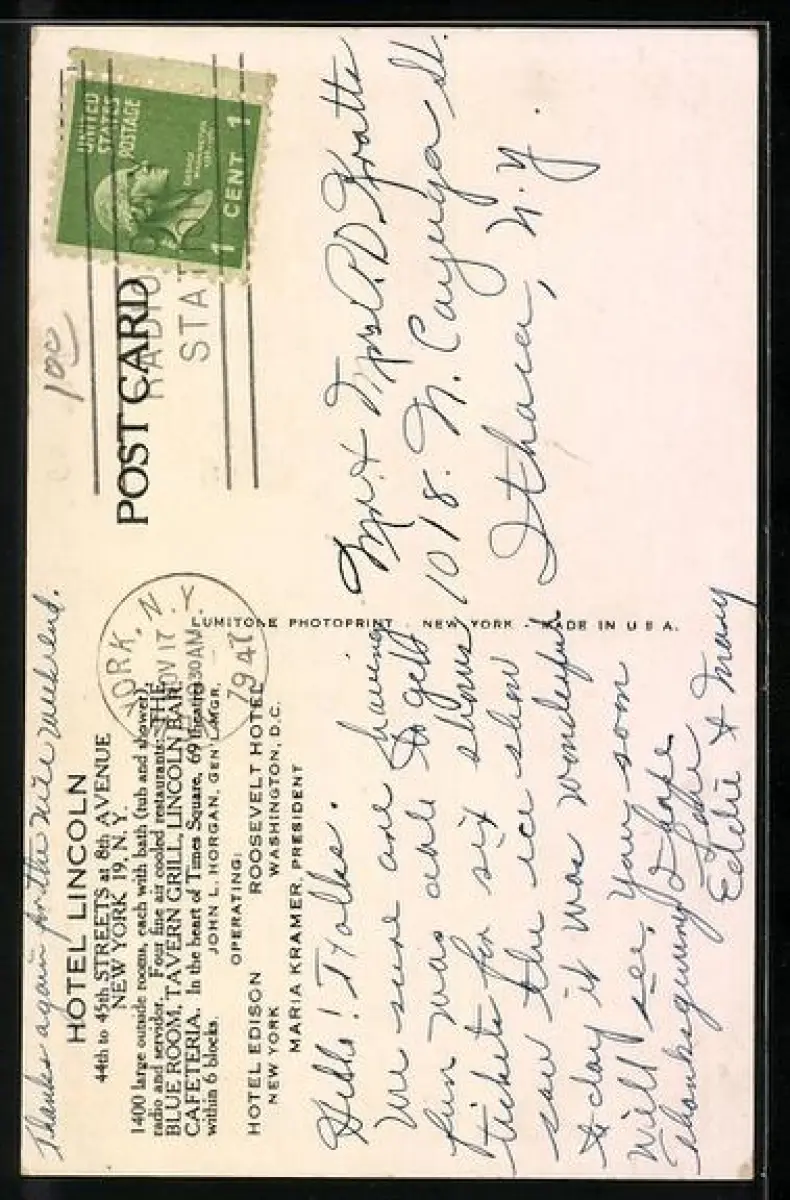 Thanks again for the nice weekend.
HOTEL LINCOLN
44th to 45th STREETS at 8th AVENUE
NEW YORK 19, N. Y.
1400 large outside rooms, each with bath (tub and shower),
radio and servidor. Four fine air cooled restaurants: THE
BLUE ROOM, TAVERN GRILL, LINCOLN BAR,
CAFETERIA. In the heart of Times Square, 69 theatres
within 6 blocks.
JOHN L. HORGAN, GEN'L MGR.
OPERATING:
HOTEL EDISON
NEW YORK
ROOSEVELT HOTEL
WASHINGTON, D.C.
MARIA KRAMER, PRESIDENT
Hello! Folks.
We sure are having
fun was able to get
tickets for six shows
saw the ice show
to day it was wonderful
Will see, you soon
Thanksgiving I hope
Love
Eddie & Mary
LUMITONE PHOTOPRINT - NEW YORK - MADE IN U S A.
YORK, N.Y.
NOV 17
30 AM
1947
POST CARD
RADIO
STA
10c
UNITED
STATES
POSTAGE
1 CENT 1
Mr. & Mrs A D
1018. N. Cayuga St.
Ithaca, N.Y.